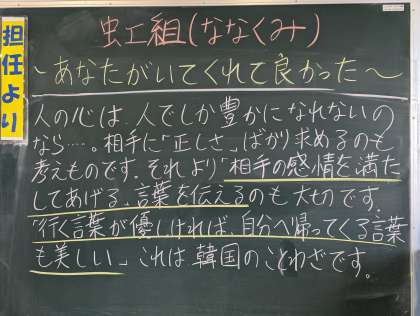 担任より
虹組(ななくみ)
~あなたがいてくれて良かった~
人の心は、人でしか豊かになれないの
なら…。相手に「正しさ」ばかり求めるのも
考えものです。それより「相手の感情を満た
してあげる、言葉を伝える」のも大切です。
"行く言葉が優しければ、自分へ帰ってくる言葉
も美しい。」これは韓国のことわざです。